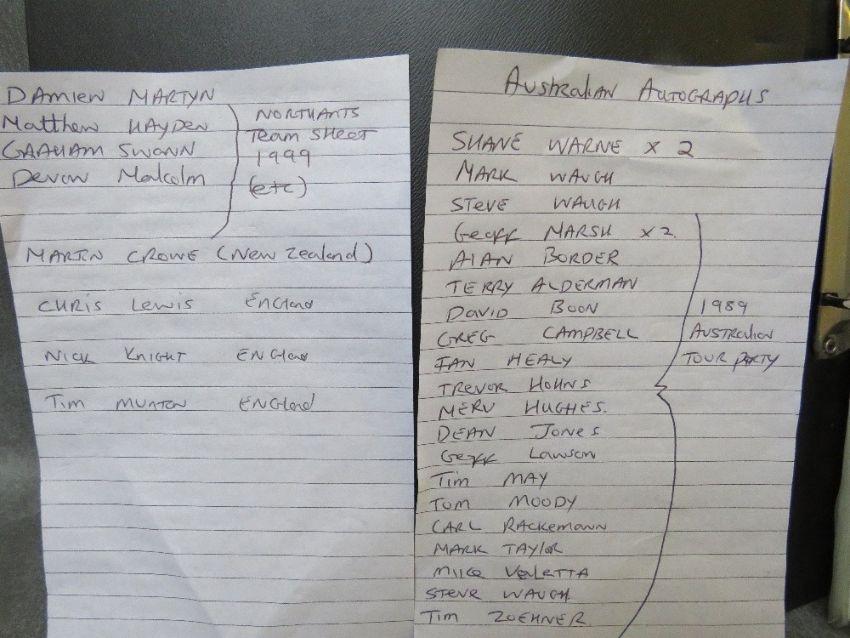 DAMIEN MARTYN
Matthew HAYDEN
GRAHAM SWANN
Devon Malcolm
NORTHANTS
TEAM SHEET
1999
(etc)
MARTIN CROWE (New Zealand)
CHRIS LEWIS ENGLAND
NICK KNIGHT ENGLAND
TIM MUNTON ENGLAND
AUSTRALIAN AUTOGRAPHS
SHANE WARNE x 2
MARK WAUGH
STEVE WAUGH
GEOFF MARSH x2
ALAN BORDER
TERRY ALDERMAN
DAVID BOON
GREG CAMPBELL
IAN HEALY
TREVOR HOHNS
MERV HUGHES.
DEAN JONES
GEOFF LAWSON
TIM MAY
TOM MOODY
CARL RACKEMANN
MARK TAYLOR
MIKE VELETTA
STEVE WAUGH
TIM ZOEHNER
1989
AUSTRALIAN
TOUR PARTY